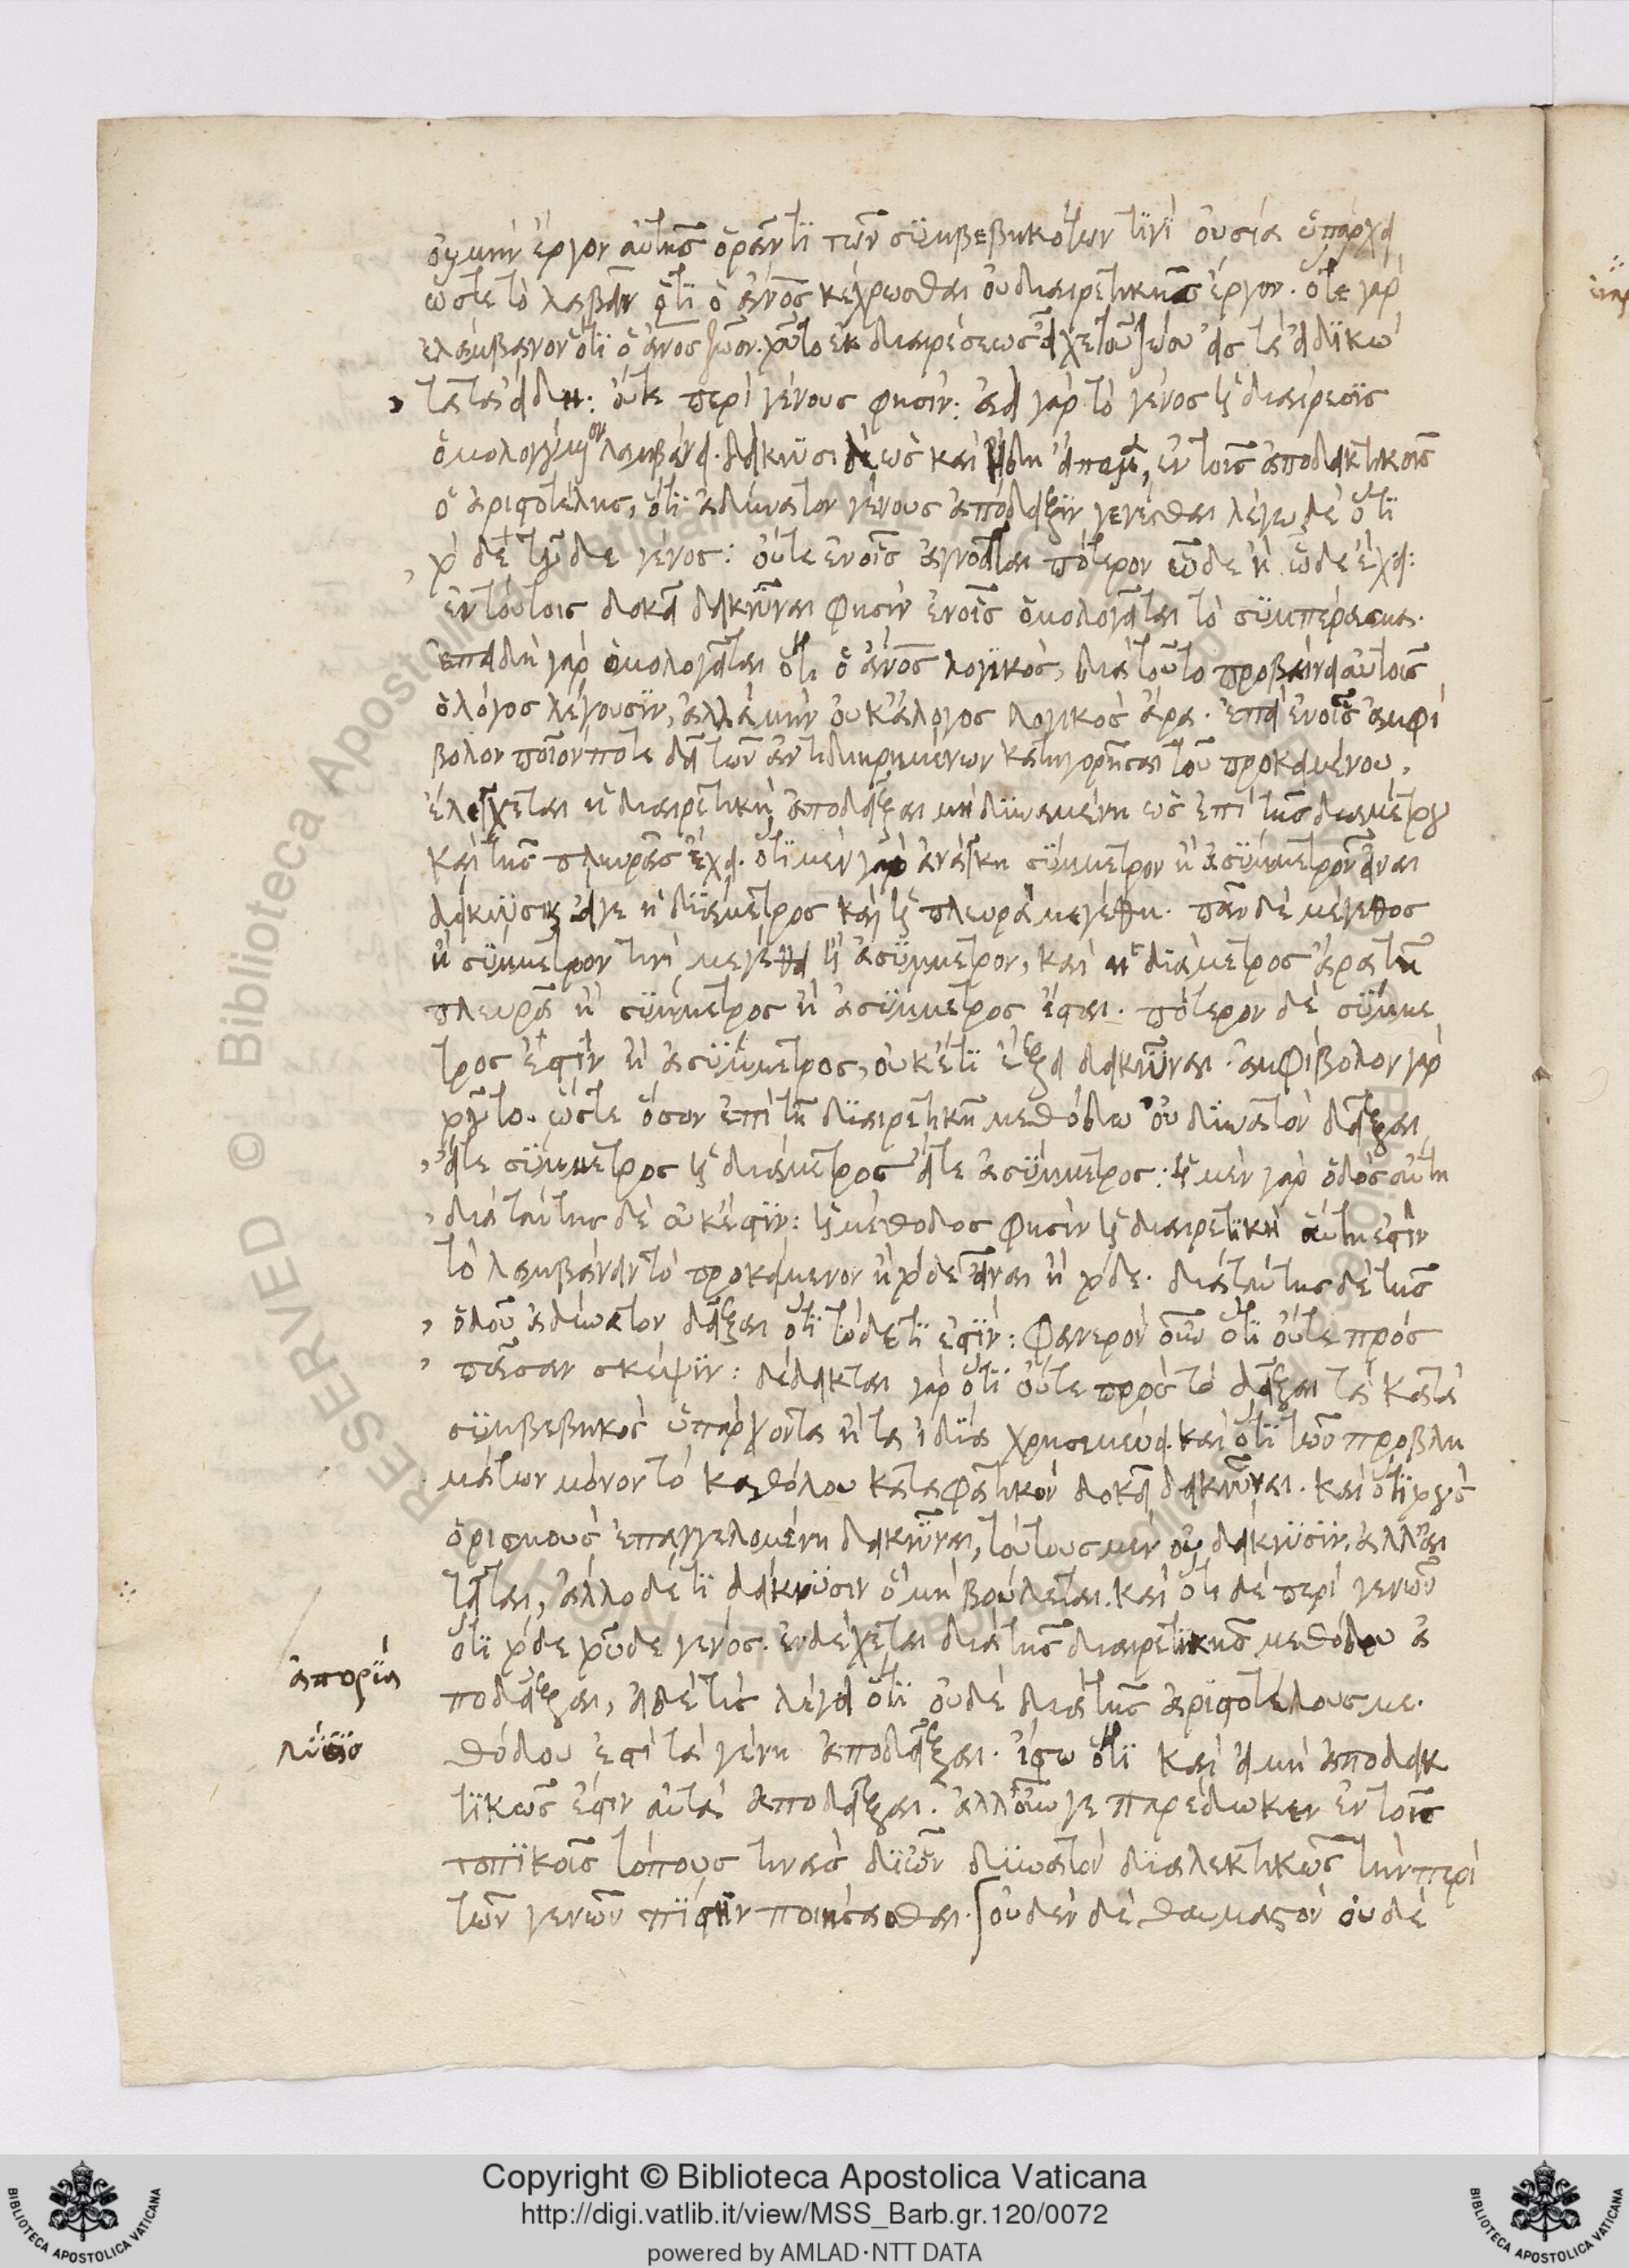 οὐ μὴν ἔργον αὐτῆς ὁρᾶν τί τῶν συμβεβηκότων τινὶ οὐσία ὑπάρχει
ὥστε τὸ λαβεῖν ὅτι ὁ ἄνος κεχρῶσθαι οὐ διαιρετικῆς ἔργον. ὅτε γὰρ
ἐλάμβανον ὅτι ὁ ἄνος ζῶον. τοῦτο ἐκ διαιρέσεως εἶχε τοῦ ζώου εἰς τὰ εἰδικώ
τατα εἴδη: οὔτε περὶ γένους φησίν: ἀεὶ γὰρ τὸ γένος ἡ διαίρεσις
ὁμολογούμενον λαμβάνει. δείκνυσι δὲ ὡς καὶ ἤδη εἴπομεν, ἐν τοῖς ἀποδεικτικοῖς
ὁ ἀριστοτέλης, ὅτι ἀδύνατον γένους ἀπόδειξιν γενέσθαι λέγω δὲ ὅτι
τόδε τοῦδε γένος: οὔτε ἐν οἷς ἀγνοεῖται πότερον ὧδε ἢ ὧδε ἔχει:
ἐν τούτοις δοκεῖ δεικνύναι φησὶν ἐν οἷς ὁμολογεῖται τὸ συμπέρασμα.
ἐπειδὴ γὰρ ὁμολογεῖται ὅτι ὁ ἄνος λογικὸς, διὰ τοῦτο προβαίνει αὐτοῖς
ὁ λόγος λέγουσιν, ἀλλὰ μὴν οὐκ ἄλογος λογικὸς ἄρα. ἐπεὶ ἐν οἷς ἀμφί
βολον ποῖόν ποτε δεῖ τῶν ἀντιδιῃρημένων κατηγορῆσαι τοῦ προκειμένου,
ἐλέγχεται ἡ διαιρετικὴ ἀποδεῖξαι μὴ δυναμένη ὡς ἐπὶ τῆς διαμέτρου
καὶ τῆς πλευρᾶς ἔχει. ὅτι μὲν γὰρ ἀνάγκη σύμμετρον ἢ ἀσύμμετρον εἶναι
δείκνυσιν εἴγε ἡ διάμετρος καὶ ἡ πλευρὰ μεγέθη. πᾶν δὲ μέγεθος
ἢ σύμμετρον τινὶ μεγέθει ἢ ἀσύμμετρον, καὶ ἡ διάμετρος ἄρα τῇ
πλευρᾷ ἢ σύμμετρος ἢ ἀσύμμετρος ἔσται. πότερον δὲ σύμμε
τρος ἐστὶν ἢ ἀσύμμετρος, οὐκέτι ἕξει δεικνύναι. ἀμφίβολον γὰρ
τοῦτο. ὥστε ὅσον ἐπὶ τῇ διαιρετικῇ μεθόδω οὐ δυνατὸν δεῖξαι
εἴτε σύμμετρος ἡ διάμετρος εἴτε ἀσύμμετρος: ἡ μὲν γὰρ ὁδὸς αὕτη
διὰ ταύτης δὲ οὐκ ἔστιν: ἡ μέθοδος φησὶν ἡ διαιρετικὴ αὕτη ἐστὶν
τὸ λαμβάνειν τὸ προκείμενον ἢ τόδε εἶναι ἢ τόδε. διὰ ταύτης δὲ τῆς
ὁδοῦ ἀδύνατον δεῖξαι ὅτι τόδε τί ἐστὶν: φανερὸν οὖν ὅτι οὔτε πρὸς
πᾶσαν σκέψιν: δέδεικται γὰρ ὅτι οὔτε πρὸς τὸ δεῖξαι τὰ κατὰ
συμβεβηκὸς ὑπάρχοντα ἢ τὰ ἴδια χρησιμεύει. καὶ ὅτι τῶν προβλη
μάτων μόνον τὸ καθόλου καταφατικὸν δοκεῖ δεικνύναι. καὶ ὅτι τοὺς
ὁρισμοὺς ἐπαγγελομένη δεικνύναι, τούτους μὲν οὐ δείκνυσιν, ἀλλ' αἰ
τεῖται, ἄλλο δέ τι δείκνυσιν ὃ μὴ βούλεται. καὶ ὅτι δὲ περὶ γενῶν
ὅτι τόδε τοῦδε γένος. ἐνδέχεται διὰ τῆς διαιρετικῆς μεθόδου ἀ
ποδεῖξαι, εἰ δέ τις λέγει ὅτι οὐδὲ διὰ τῆς ἀριστοτέλους με.
θόδου ἐστὶ τὰ γένη ἀποδεῖξαι. ἴστω ὅτι καὶ εἰ μὴ ἀποδεικ
τικῶς ἔστιν αὐτὰ ἀποδεῖξαι. ἀλλ' οὖν γε παρέδωκεν ἐν τοῖς
τοπικοῖς τόπους τινὰς δι' ὧν δυνατὸν διαλεκτικῶς τὴν περὶ
τῶν γενῶν πίστιν ποιήσασθαι. οὐδὲν δὲ θαυμαστὸν οὐδὲ
ἀπορία
λύσις
RESERVED © Biblioteca Apostolica Vaticana
Copyright © Biblioteca Apostolica Vaticana
http://digi.vatlib.it/view/MSS_Barb.gr.120/0072
powered by AMLAD·NTT DATA
BIBLIOTECA APOSTOLICA VATICANA
BIBLIOTECA APOSTOLICA VATICANA